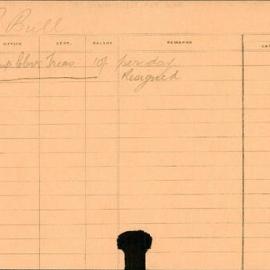 Bull
OFFICE DEPT. SALARY REMARKS
Clerk Treas 10/ per day
Resigned